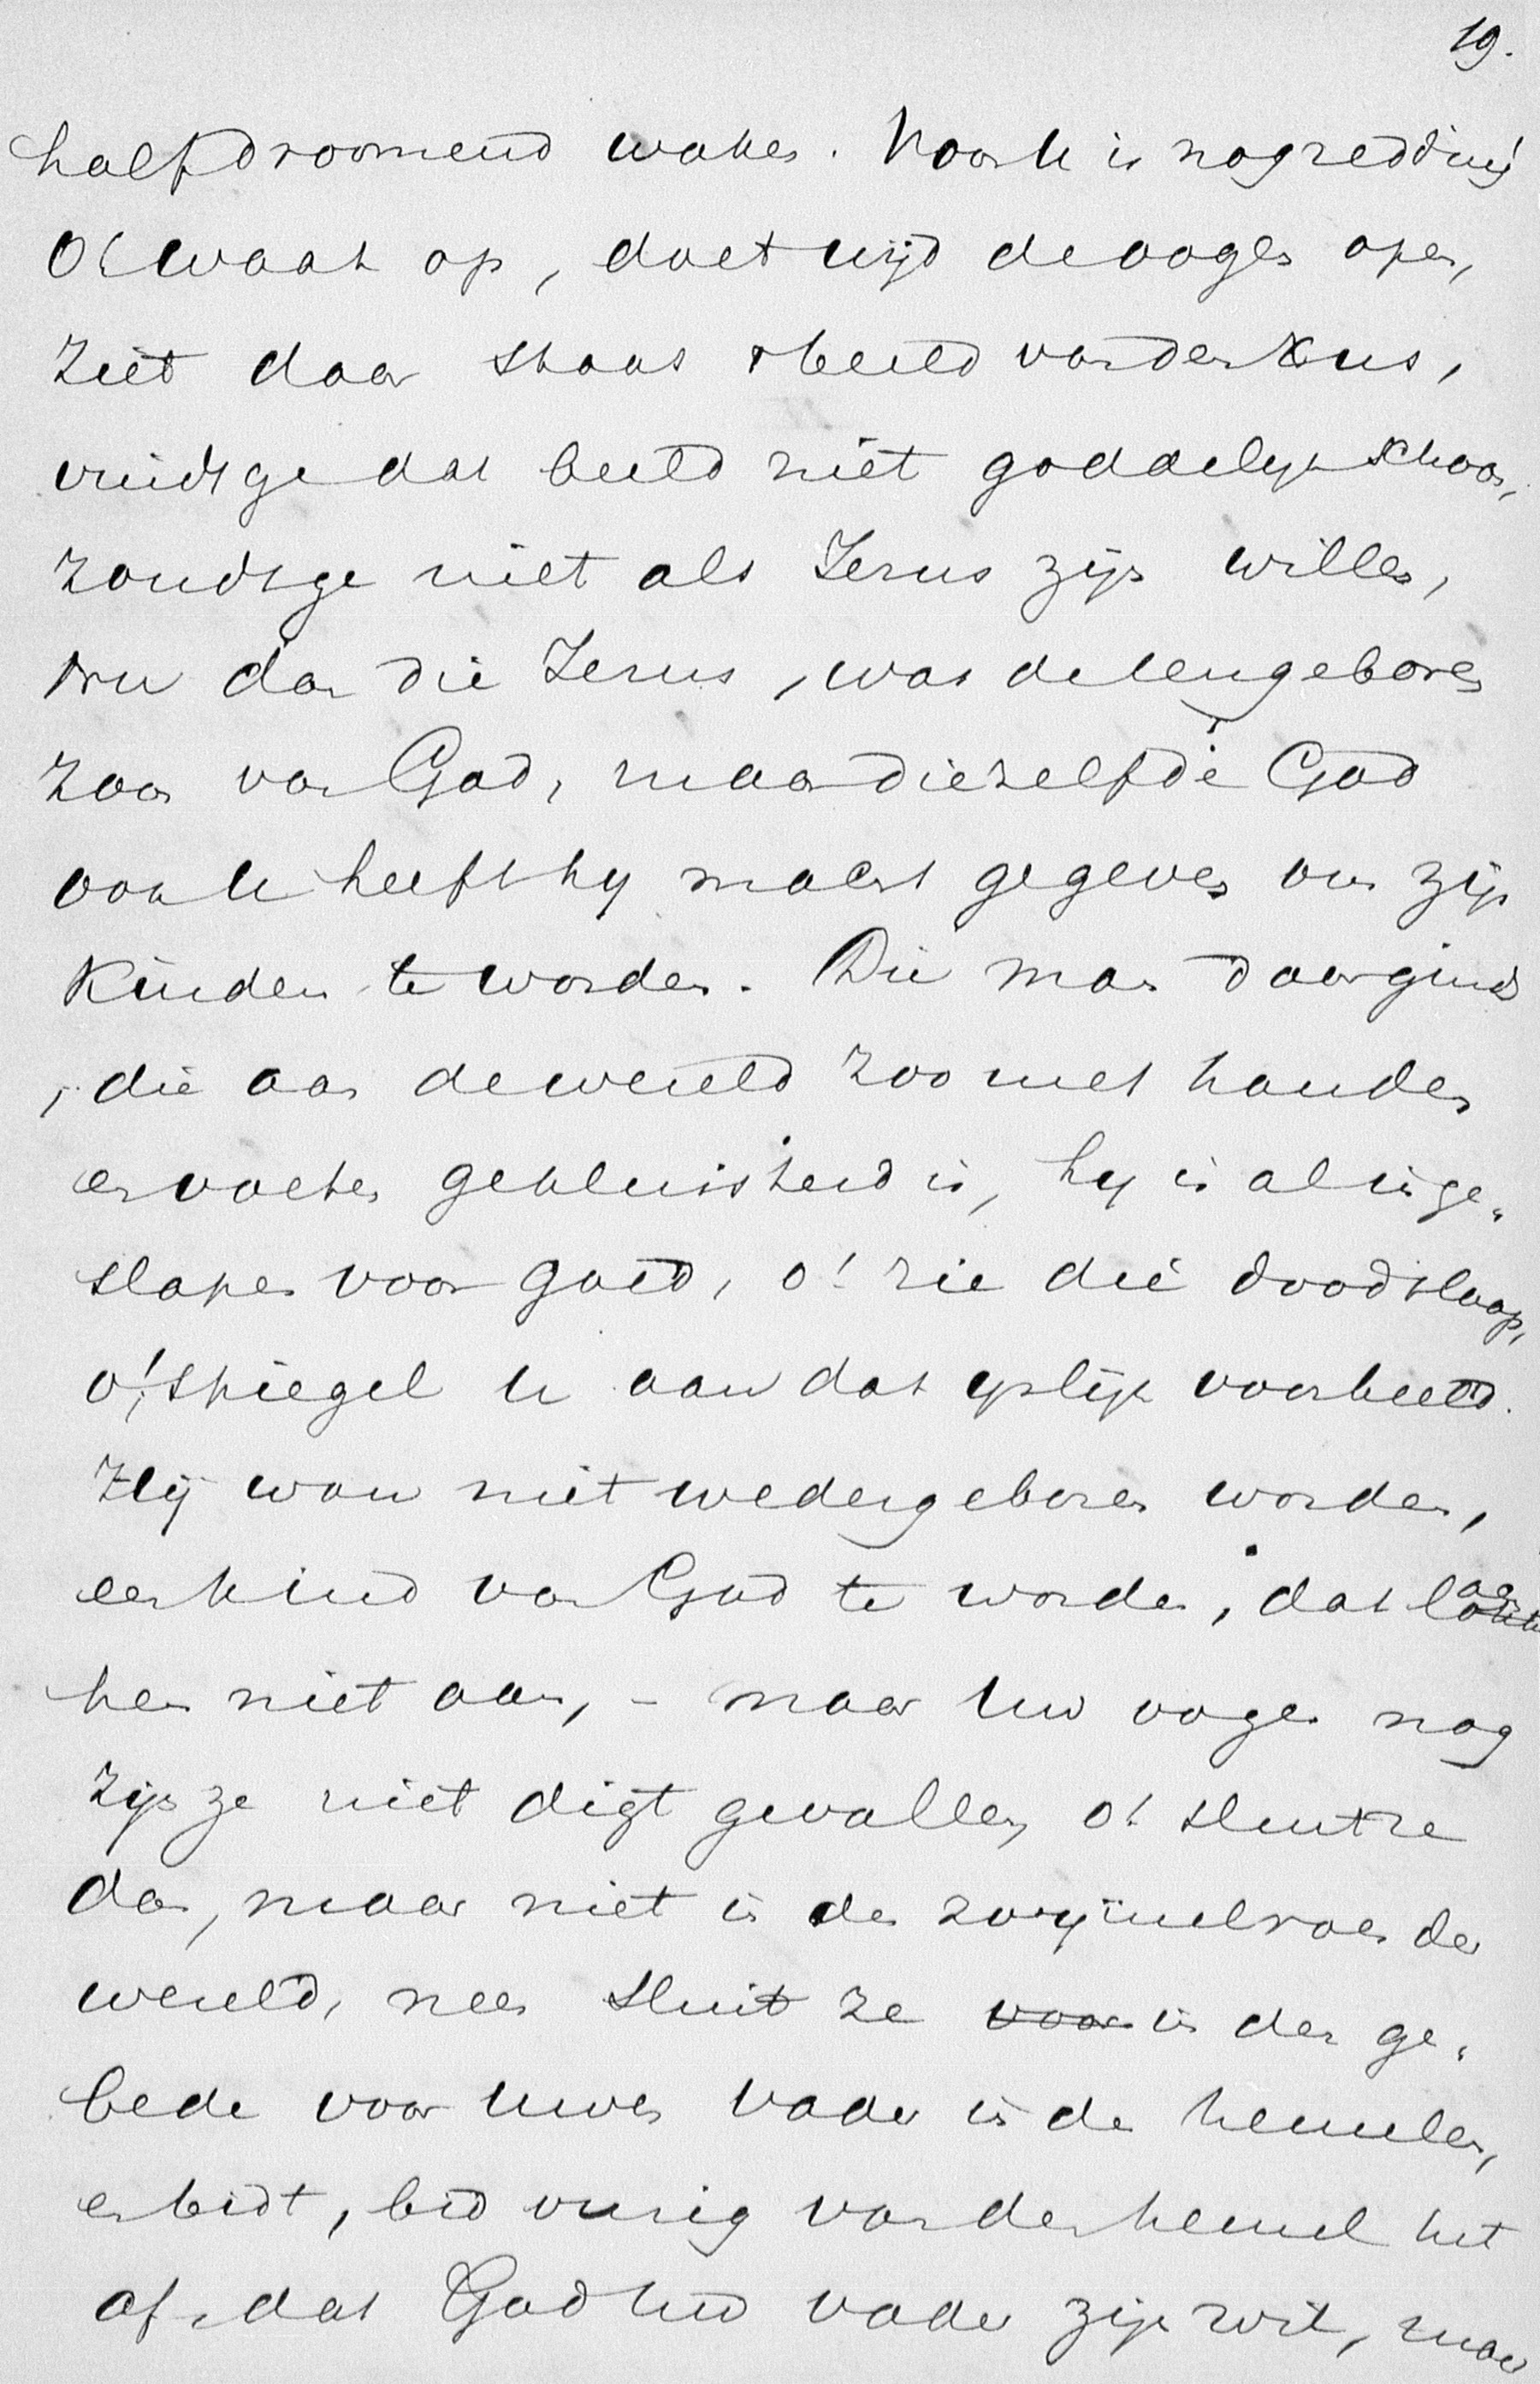 19.
half droomend waken. Voor U is nog redding
O! waak op, doet wijd de oogen open,
Ziet daar staat 't beeld van den Zus,
vindt ge dat beeld niet goddelijk schoon,
zoudt ge niet als Jezus zijn willen,
Nu dan die Jezus, was de eengeboren
zoon van God, maar diezelfde God
ook U heeft hij macht gegeven om zijn
Kinderen te worden. Die man daarginds
, die aan de wereld zoo met handen
en voeten gekluisterd is, hij is al inge„
slapen voor goed, o! zie die doodslaap,
o! spiegel U aan dat ijslijk voorbeeld.
Hij wou niet wedergeboren worden,
een kind van God te worden, dat
hem niet aan, – maar Uw oogen nog
zijn ze niet digt gevallen, o! sluit ze
dan, maar niet in den zwijmelroes der
wereld, neen sluit ze voor in den ge„
bede voor Uwen Vader in de hemelen,
en bidt, bid vurig van den hemel het
af, dat God Uw vader zijn wil, maar